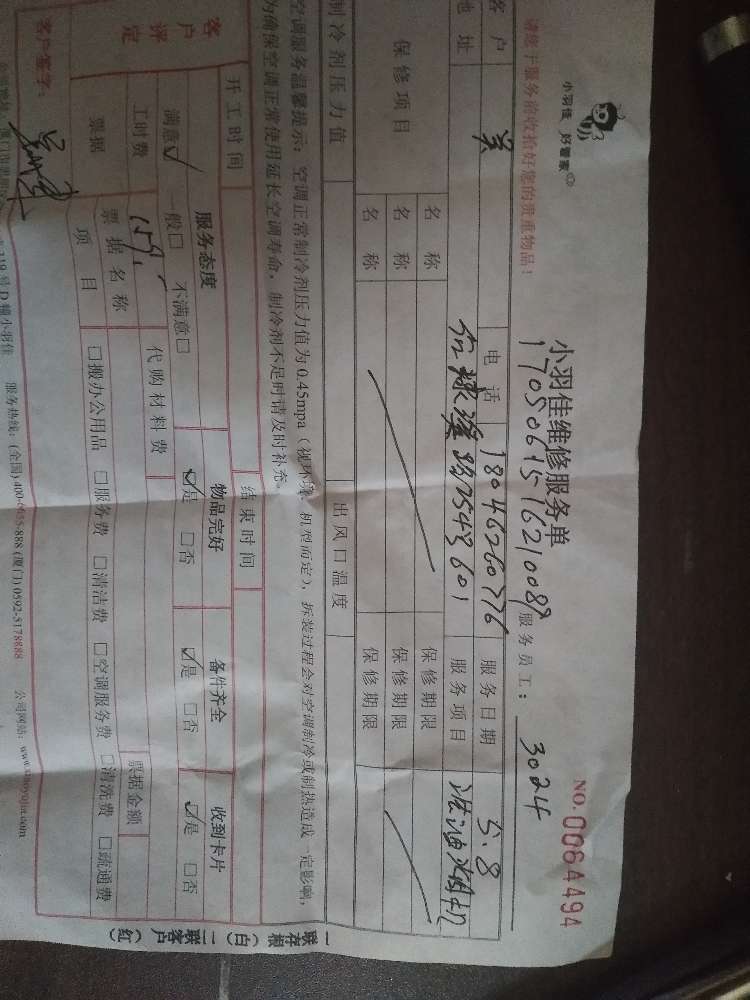 小羽佳 好管家
请您于服务前收拾好您的贵重物品!
小羽佳维修服务单
NO.0064494
1705061516210089
服务员工: 3024
客户 吴 电话 18046260776 服务日期 5.8
地址 2543601 服务项目 洗油烟机
保修项目
名称 保修期限
名称 保修期限
名称 保修期限
制冷剂压力值 出风口温度
空调服务温馨提示: 空调正常制冷剂压力值为0.45mpa(视环境、机型而定), 拆装过程会对空调制冷或制热造成一定影响,
为确保空调正常使用延长空调寿命, 制冷剂不足时请及时补充。
开工时间 结束时间
客户评定
服务态度 物品完好 备件齐全 收到卡片
满意☑ 一般□ 不满意□ ☑是 □否 ☑是 □否 ☑是 □否
工时费 159 代购材料费
票据 票据名称 票据金额
项目 □搬办公用品 □服务费 □清洁费 □空调服务费 □清洗费 □疏通费
客户签字:
号D幢小羽佳 服务热线: (全国)400-6655-888 (厦门)0592-5178888 公司网站: www.xiaoyujia.com
一联存根(白) 二联客户(红)